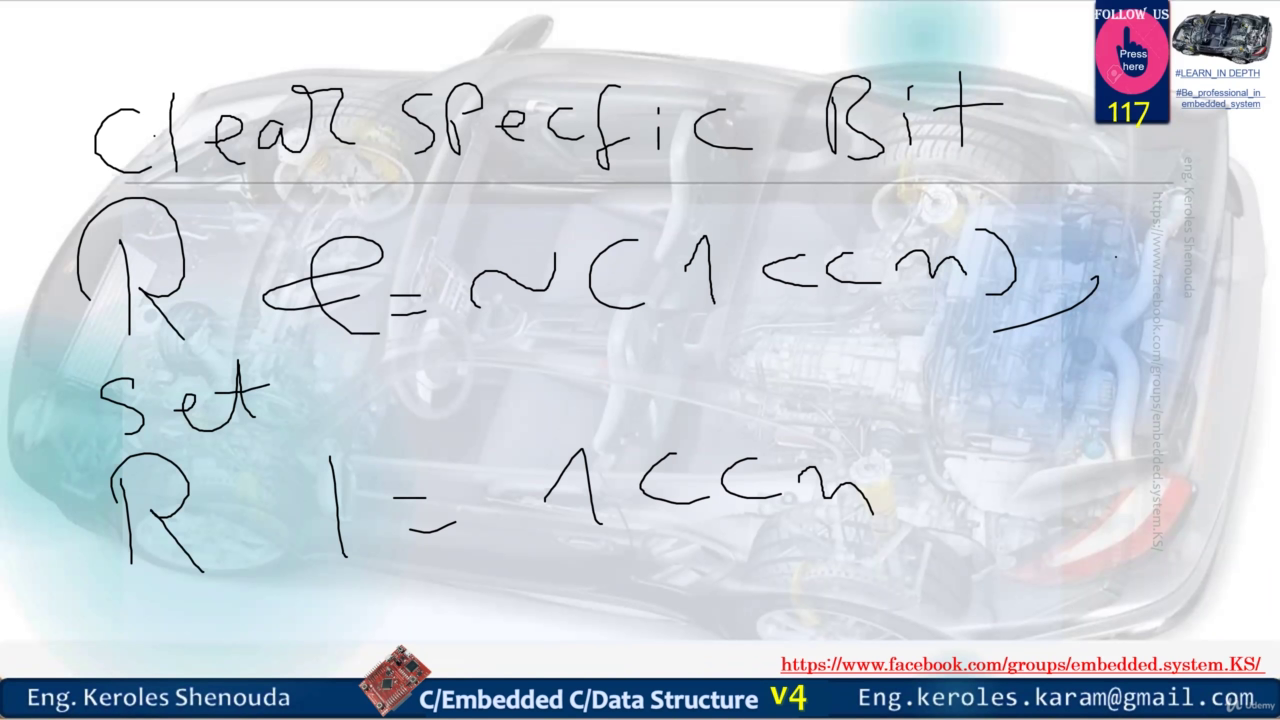 FOLLOW US
Press
here
117
#LEARN_IN DEPTH
#Be_professional_in
embedded_system
Clear Specfic Bit
R &= ~(1<<n);
Set
R |= 1<<n
eng. Keroles Shenouda
https://www.facebook.com/groups/embedded.system.KS/
https://www.facebook.com/groups/embedded.system.KS/
Eng. Keroles Shenouda
C/Embedded C/Data Structure V4
Eng.keroles.karam@gmail.com
Udemy